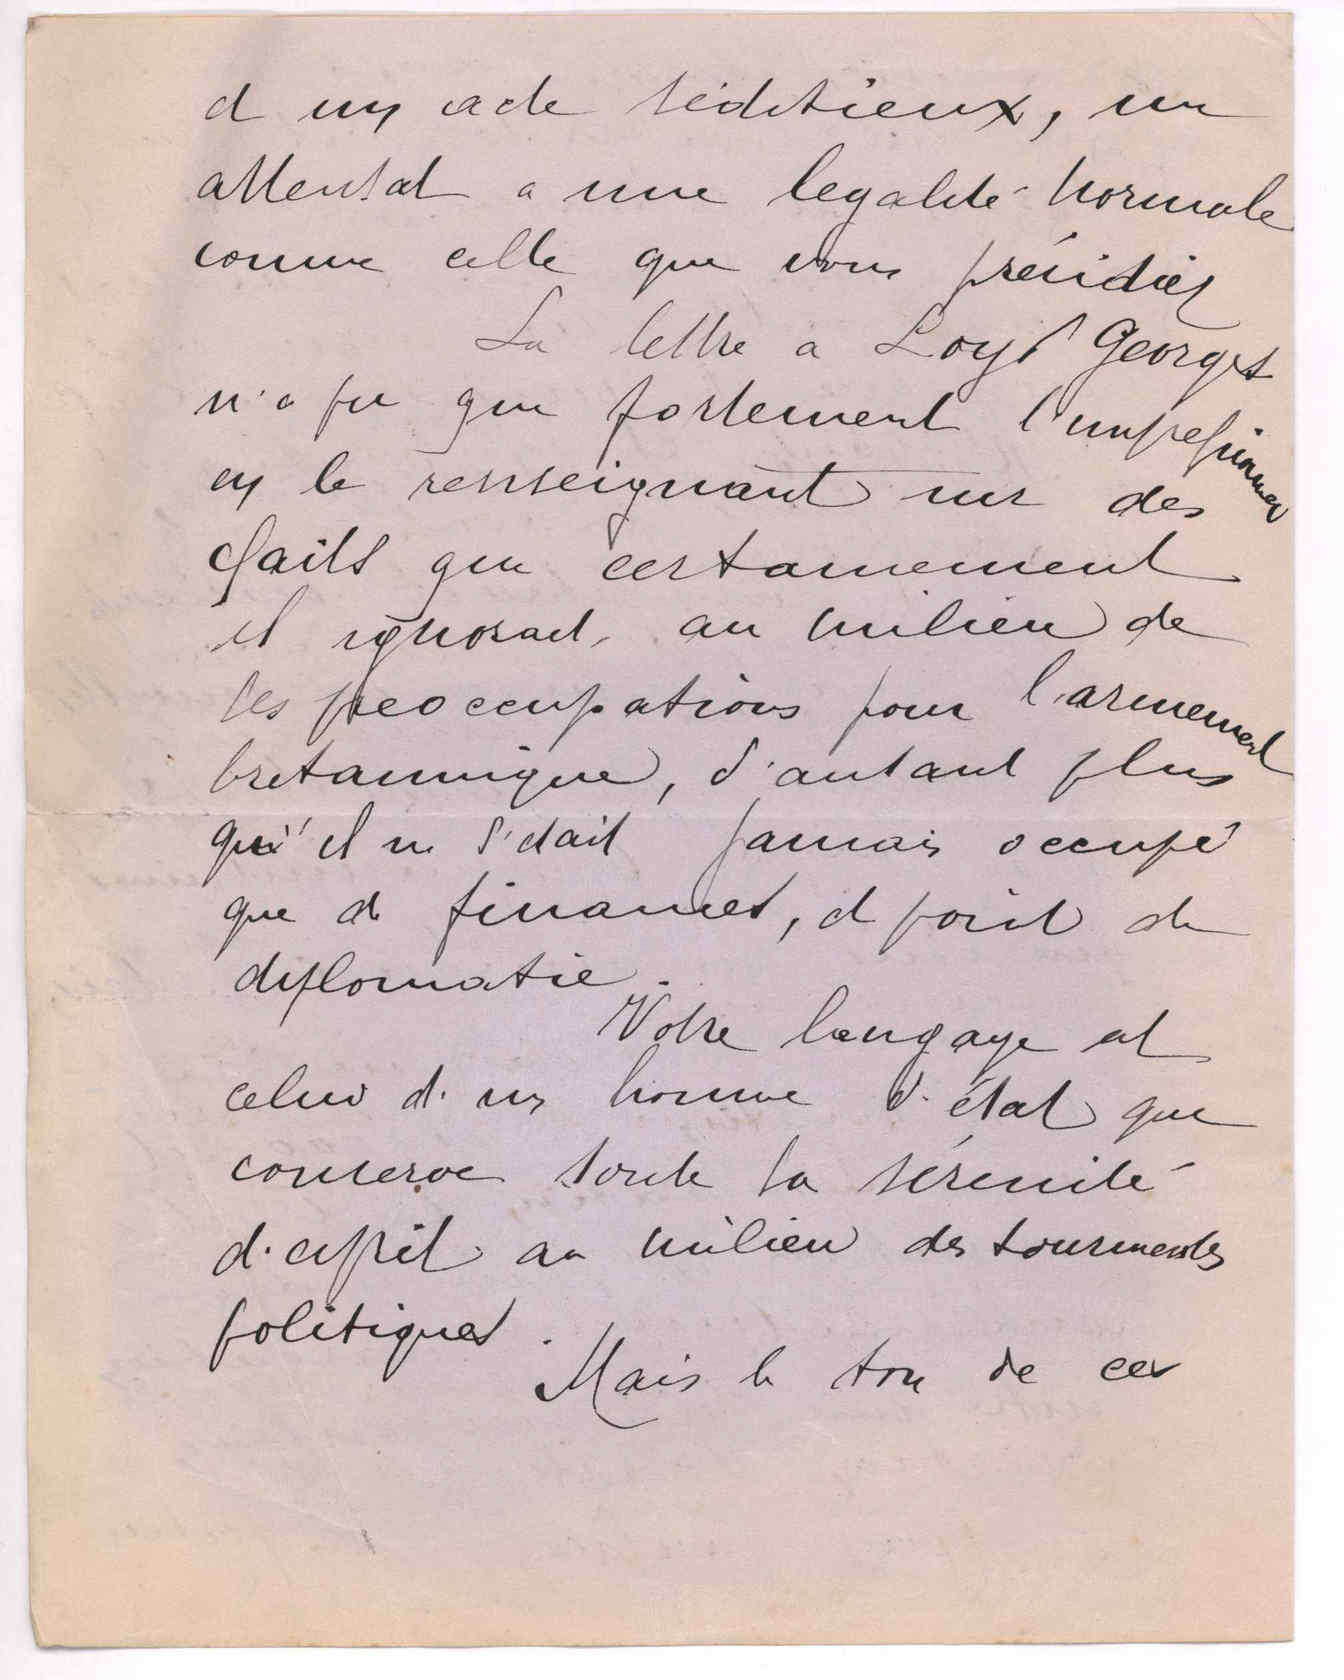 d'un acte séditieux, un
attentat a une légalité normale
comme celle que vous présidiez
La lettre a Loyd Georges
n'a pu que fortement l'impressionner
en le renseignant sur des
faits que certainement
il ignorait, au milieu de
ses préoccupations pour l'armement
britannique, d'autant plus
qu'il ne s'était jamais occupé
que de finances, et point de
diplomatie.
Votre langage est
celui d'un homme d'état qui
conserve toute sa sérénité
d'esprit au milieu des tourmentes
politiques.
Mais le ton de ces